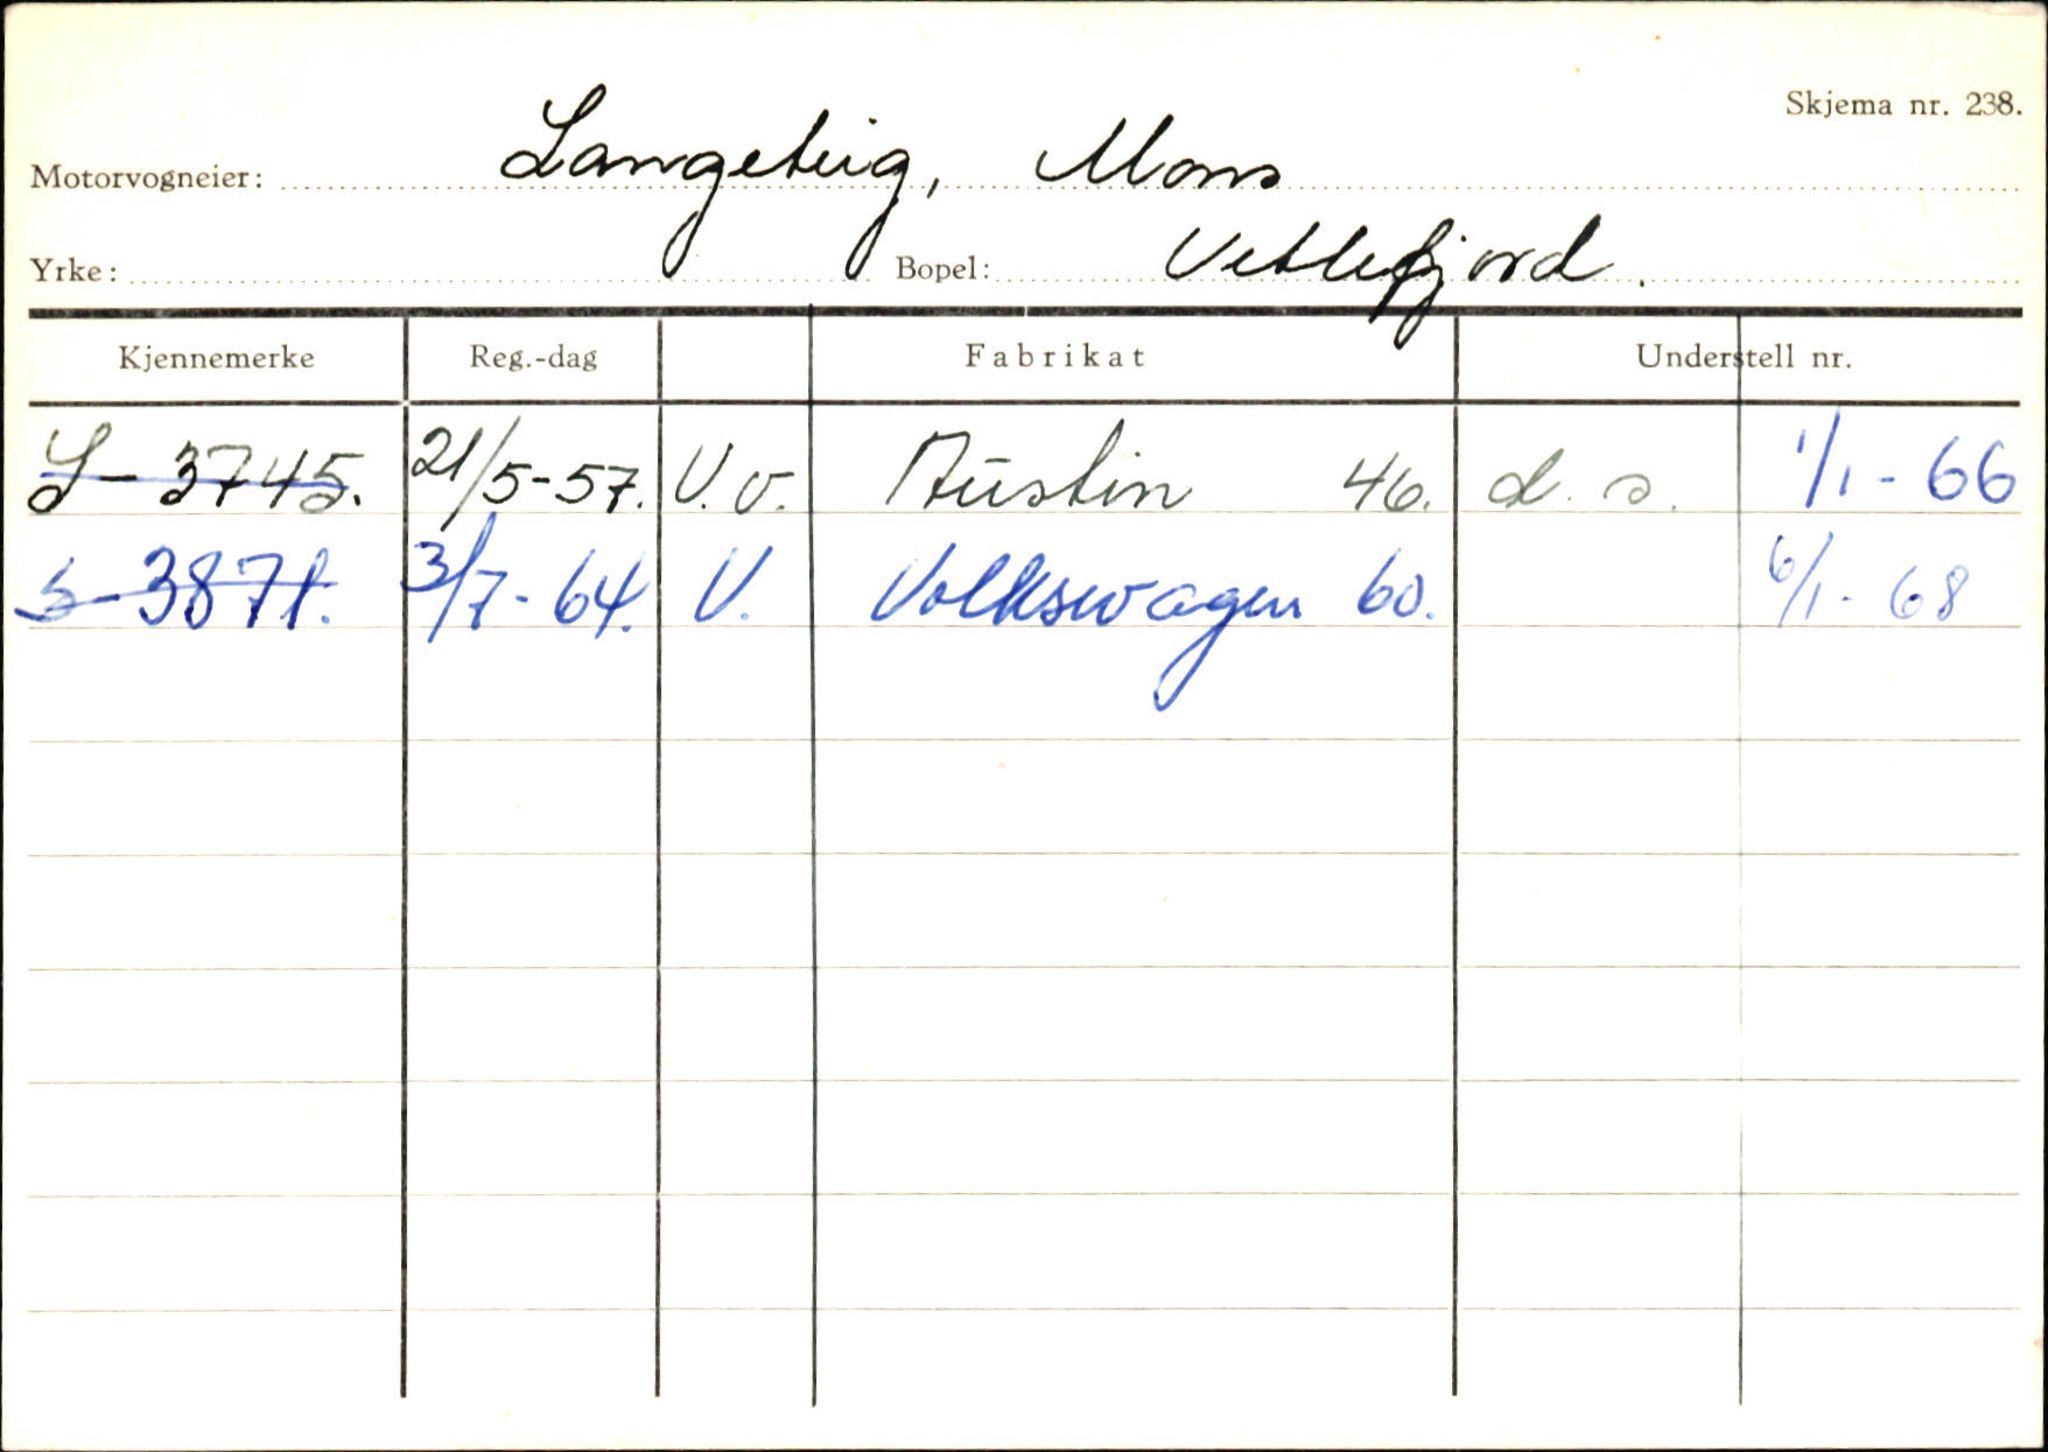 Skjema nr. 238.
Motorvogneier: Langeteig, Mons
Yrke: Bopel: Vetlefjord.
Kjennemerke Reg.-dag Fabrikat Understell nr.
S-3745. 21/5-57. V.v. Austin 46. d.s. 1/1-66
S-3871. 3/7-64. V. Volkswagen 60. 6/1-68